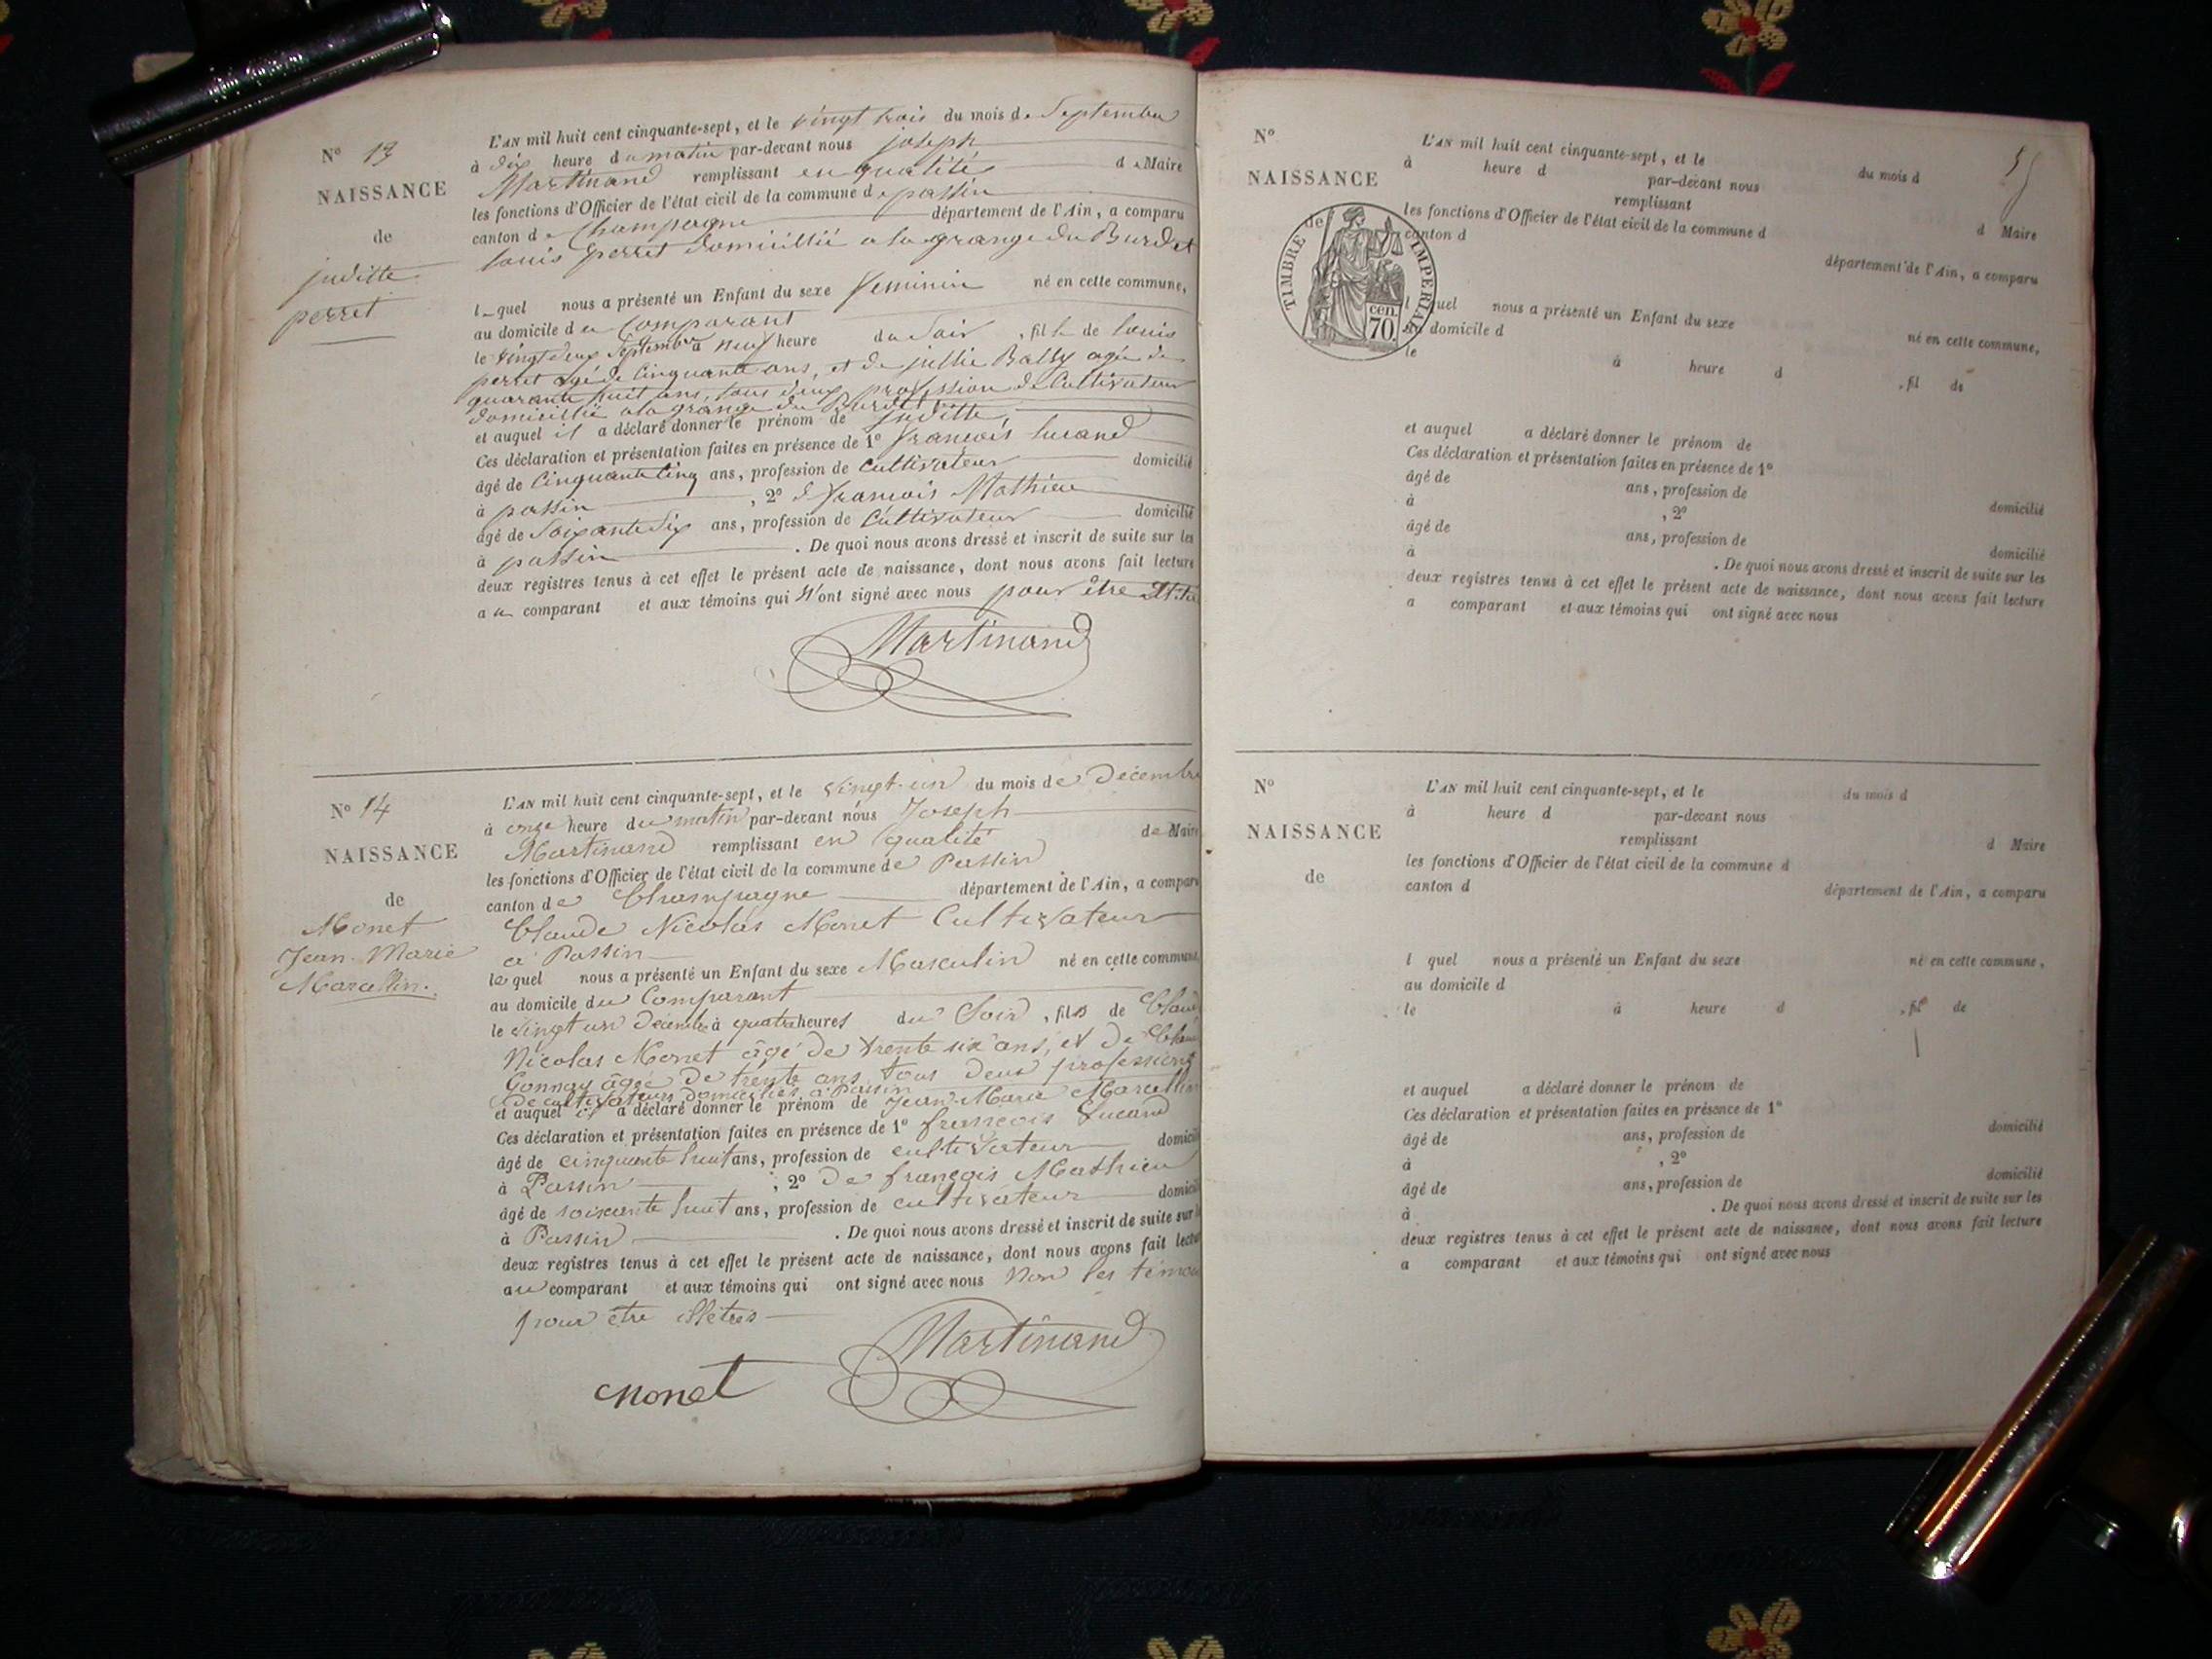 N° 13
NAISSANCE
de
juditte
perret
L'AN mil huit cent cinquante-sept, et le vingt trois du mois de Septembre
à dix heure du matin par-devant nous joseph
Martinand remplissant en qualité de Maire
les fonctions d'Officier de l'état civil de la commune de passin
canton de Champagne département de l'Ain, a comparu
louis perret domicillié a la grange du Burdet
lequel nous a présenté un Enfant du sexe feminin né en cette commune,
au domicile du Comparant
le vingt deux Septembre à neuf heure du Soir, fille de louis
perret agé de Cinquante ans, et de jullie Bally agée de
quarante huit ans, tous deux profession de Cultivateur
domicillié a la grange du Burdet
et auquel il a déclaré donner le prénom de juditte
Ces déclaration et présentation faites en présence de 1° francois lucand
âgé de Cinquante Cinq ans, profession de Cultivateur domicilié
à passin, 2° d francois Mathieu
âgé de Soixante Six ans, profession de Cultivateur domicilié
à passin. De quoi nous avons dressé et inscrit de suite sur les
deux registres tenus à cet effet le présent acte de naissance, dont nous avons fait lecture
au comparant et aux témoins qui N'ont signé avec nous pour être
Martinand
N° 14
NAISSANCE
de
Monet
Jean-Marie
Marcellin.
L'AN mil huit cent cinquante-sept, et le vingt-un du mois de Décembre
à onze heure du matin par-devant nous Joseph
Martinand remplissant en qualité de Maire
les fonctions d'Officier de l'état civil de la commune de Passin
canton de Champagne département de l'Ain, a comparu
Claude Nicolas Monet Cultivateur
à Passin
lequel nous a présenté un Enfant du sexe Masculin né en cette commune
au domicile du Comparant
le vingt un Décembre à quatre heures du Soir, fils de Claude
Nicolas Monet âgé de trente six ans, et de
Gonnay âgée de trente ans, tous deux profession
de cultivateurs domiciliés à Passin
et auquel il a déclaré donner le prénom de Jean-Marie Marcellin
Ces déclaration et présentation faites en présence de 1° françois Lucand
âgé de cinquante huit ans, profession de cultivateur domicilié
à Passin, 2° de françois Mathieu
âgé de soixante huit ans, profession de cultivateur domicilié
à Passin. De quoi nous avons dressé et inscrit de suite sur les
deux registres tenus à cet effet le présent acte de naissance, dont nous avons fait lecture
au comparant et aux témoins qui ont signé avec nous non les témoins
pour être illétrés
Monet Martinand
N°
NAISSANCE
de
TIMBRE IMPERIAL
cen. 70.
L'AN mil huit cent cinquante-sept, et le du mois d
à heure d par-devant nous
remplissant d Maire
les fonctions d'Officier de l'état civil de la commune d
canton d département de l'Ain, a comparu
l quel nous a présenté un Enfant du sexe né en cette commune,
au domicile d
le à heure d, fil de
et auquel a déclaré donner le prénom de
Ces déclaration et présentation faites en présence de 1°
âgé de ans, profession de domicilié
à, 2°
âgé de ans, profession de domicilié
à. De quoi nous avons dressé et inscrit de suite sur les
deux registres tenus à cet effet le présent acte de naissance, dont nous avons fait lecture
a comparant et aux témoins qui ont signé avec nous
N°
NAISSANCE
de
L'AN mil huit cent cinquante-sept, et le du mois d
à heure d par-devant nous
remplissant d Maire
les fonctions d'Officier de l'état civil de la commune d
canton d département de l'Ain, a comparu
l quel nous a présenté un Enfant du sexe né en cette commune,
au domicile d
le à heure d, fil de
et auquel a déclaré donner le prénom de
Ces déclaration et présentation faites en présence de 1°
âgé de ans, profession de domicilié
à, 2°
âgé de ans, profession de domicilié
à. De quoi nous avons dressé et inscrit de suite sur les
deux registres tenus à cet effet le présent acte de naissance, dont nous avons fait lecture
a comparant et aux témoins qui ont signé avec nous